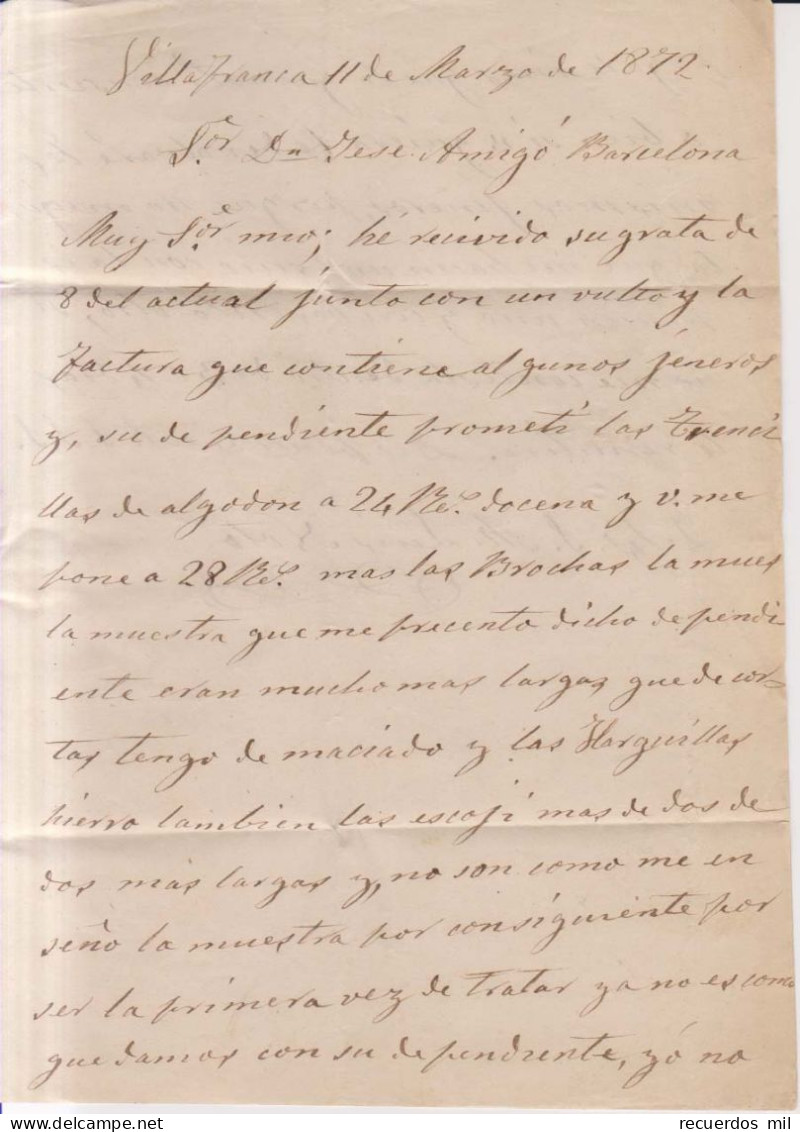 Villafranca 11 de Marzo de 1872.
S.or Dn Jese Amigó Barcelona
Muy S.or mio; hé recivido su grata de
8 del actual junto con un vulto y la
factura que contiene algunos jeneros
y, su dependiente prometí las trenci
llas de algodon a 24 Rs. docena y v. me
pone a 28 Rs. mas las Brochas la mues
la muestra que me precento dicho dependi
ente eran mucho mas largas que de cor-
tas tengo de maciado y las Horquillas
hierro tambien las escoji mas de dos de
dos mas largas y, no son como me en
seño la muestra por consiguiente por
ser la primera vez de tratar ya no es como
quedamos con su dependiente, yó no
recuerdos mil